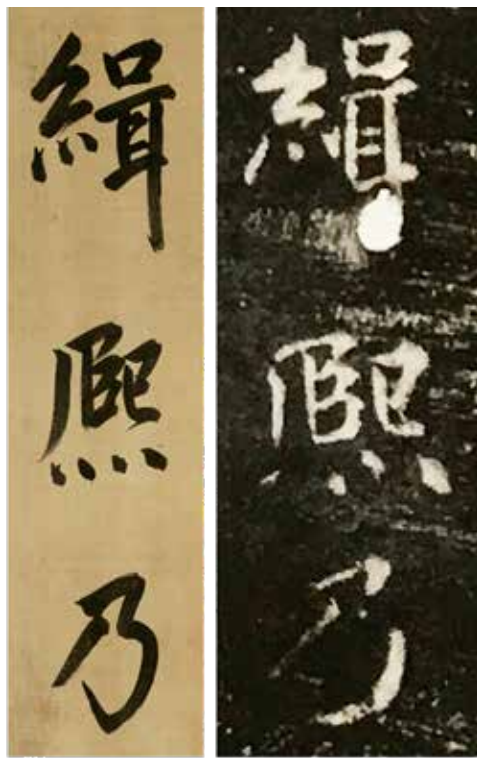 緝熙乃
緝熙乃